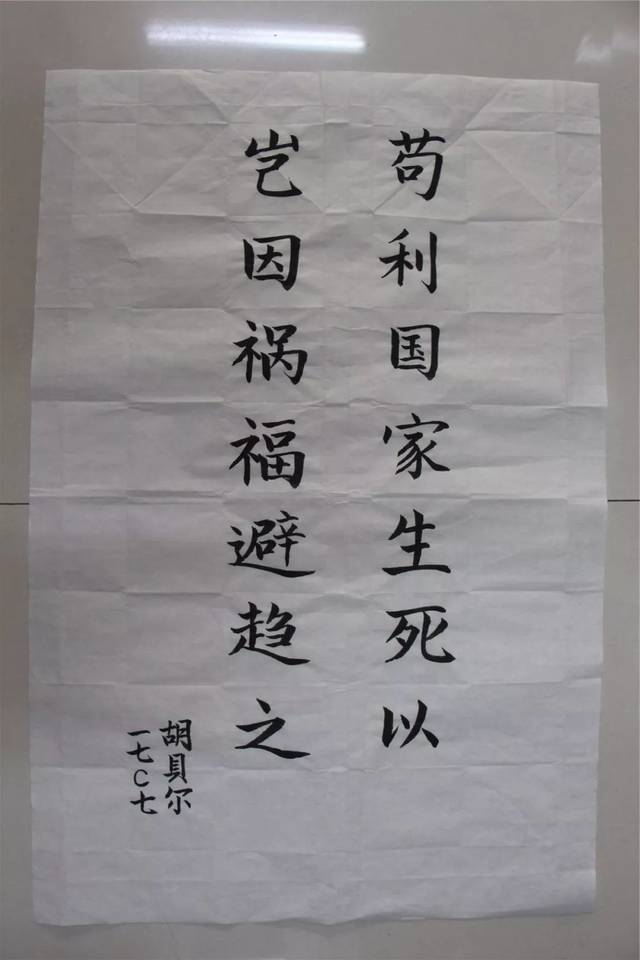 苟利国家生死以
岂因祸福避趋之
胡貝尔
一七C七